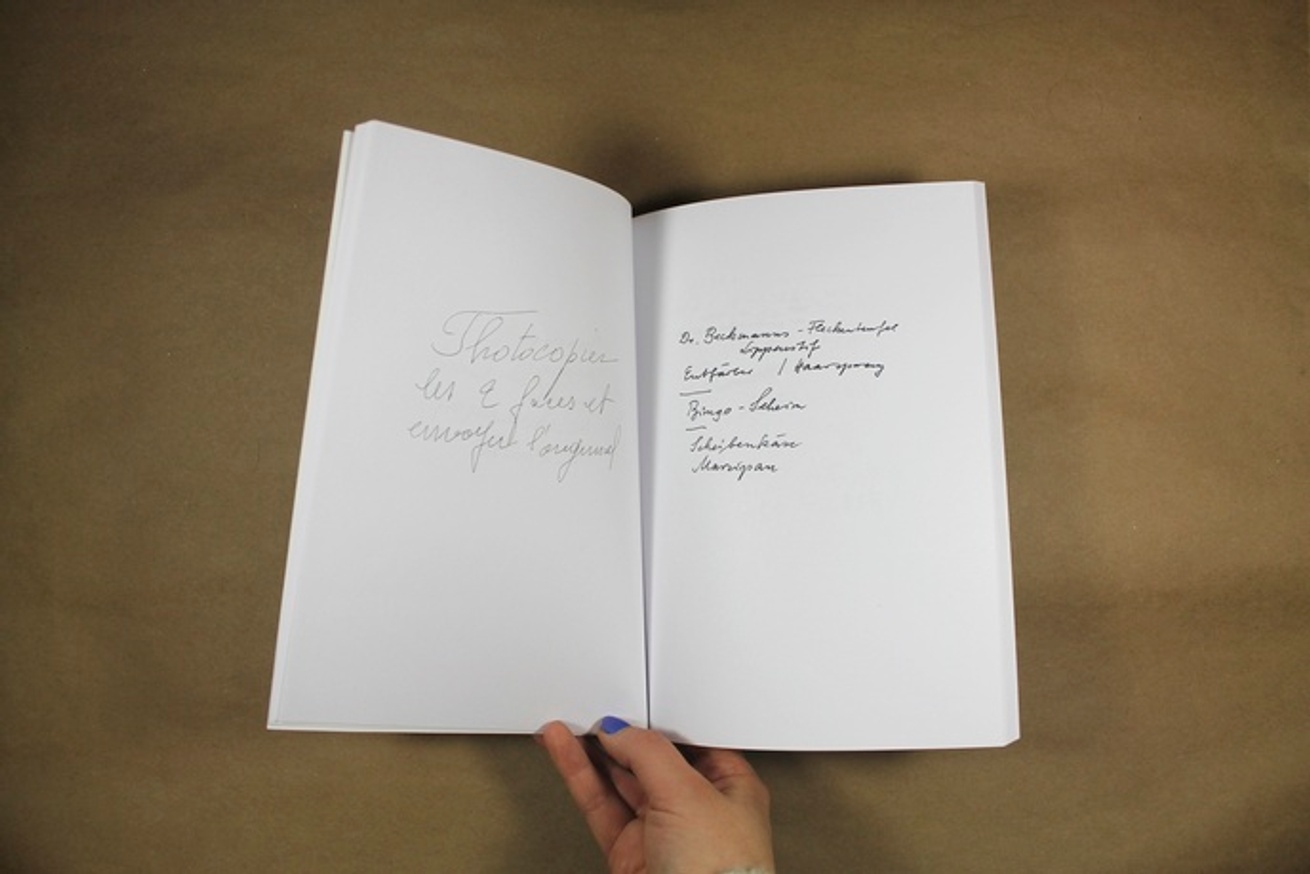 Photocopier
les 2 faces et
envoyer l'original
Dr. Beckmanns - Fleckenteufel
Lippenstif
Entfärber / Haarspray
Bingo - Schein
Scheibenkäse
Marzipan